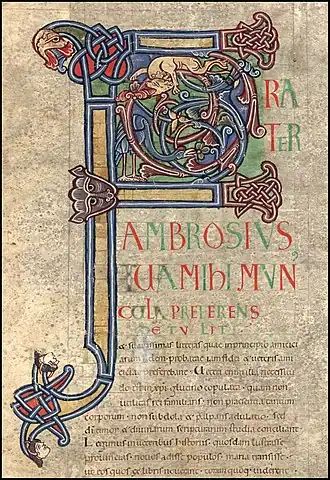 FRA
TER
AMBROSIVS,
TUA MIhI MVN
CULA PREFERENS
DETVLIT
& suavissimas litteras quae in principio amicici
arum fidem probatae iam fidei & veteris ami
cicia preferebant. Vera enim illa necessitu
do xpi glutino copulata quam non
utilitas rei familiaris, non praesentia tantum
corporum, non subdola & palpans adulatio, sed
dei timor & divinarum scripturarum studia conciliant.
Legimus in veteribus historiis, quosdam lustrasse
provincias, novos adisse populos, maria transisse,
ut eos quos ex libris noverant, coram quoque viderent.